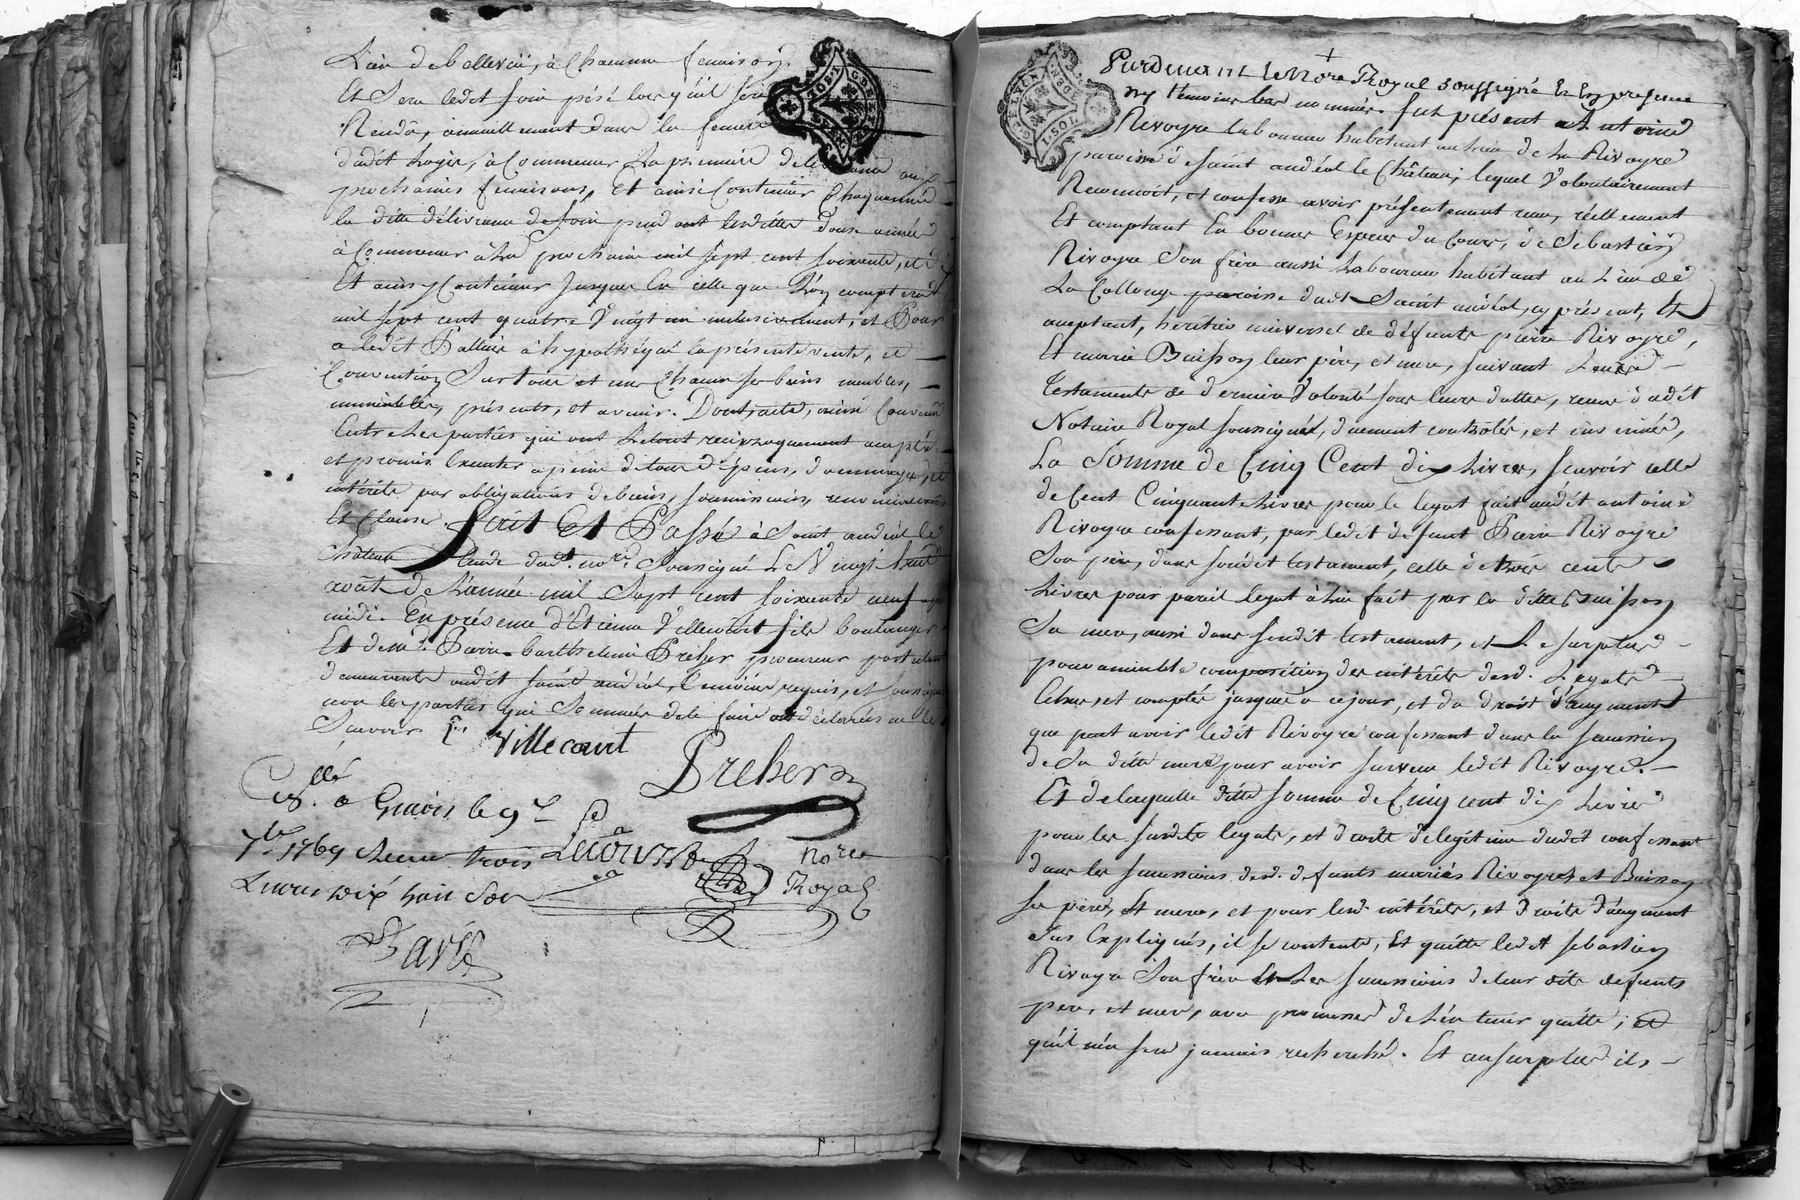 Lieu de bellevüe, à Chacune fenaison
Et Sera ledit foin pésé lors qu'il sera
Rendû, annuellement dans la feniere
dudit Logis, à Commencer La premiere délivrance aux
prochaines fenaisons, Et ainsi Continüer Chaque année
la ditte délivrance de foin pendant lesdittes Douze années
à Commencer à La prochaine mil sept cent soixante, et
Et ainsy Continüer Jusques En celle que L'on comptera
mil sept cent quatre Vingt un inclusivement, et Pour
a ledit à hypothéqué la présente vente, et
Convention Sur tous et un Chacun ses biens meubles,
immeubles, présents, et avenir. Dont acte, ainsi Convenu
Entre Les parties qui ont Le tout reciproquement accepté
et promis Exécuter a peine de tous Dépens, dommages, et
intérêts par obligations de biens, soumissions, renonciations
Et Clauses. Fait Et Passé à Saint andéol le
château Etude dud.t no.re Soussigné Le Vingt huit
août de L'année mil Sept cent soixante neuf après
midi. En présence d'Etienne Villecourt fils boulanger
Et de m.e Pierre barthelemi Preher procureur postulant
demeurants audit saint andéol, témoins requis, et soussignés
non les parties qui Sommées de le faire ont déclarés ne le
Scavoir
Villecourt
Preher
Con.llé a Givors le 9.e
7.bre 1769 Receu trois
Livres dix huit Sols
Lecourt
no.re
Royal
GEN. LYON
1. SOL
DEN.
Pardevant le No.re Royal soussigné Et En présence
des témoins bas nommés. fut présent Antoine
Rivoyre laboureur habitant au Lieu de La Rivoyre
paroisse de saint andéol le Château; lequel Volontairement
Reconnoit, et confesse avoir présentement reçu, réellement
Et comptant En bonnes Especes du Cours, de Sebastien
Rivoyre Son frère aussi Laboureur habitant au Lieu de
La Collonge paroisse dudt Saint andéol, cy présent, Et
acceptant, heritier universel de défunts pierre Rivoyre,
Et marie Buisson leur père, et mere, suivant Leurs
testaments de derniere Volonté sous leurs dattes, reçus dudit
Notaire Royal soussigné, duement controlés, et insinués,
La Somme de Cinq Cent dix Livres, sçavoir celle
de Cent Cinquante Livres pour le legat fait audit antoine
Rivoyre confessant, par ledit defunt Pierre Rivoyre
Son père, dans sondit testament, celle de trois cents
Livres pour pareil legat à Lui fait par la ditte Buisson
Sa mere, aussi dans sondit testament, et Le surplus
pour amiable composition des intérêts desd. Legats
Echus et comptés jusques a ce jour, et du droit d'augment
que peut avoir ledit Rivoyre confessant dans la succession
de Sa ditte mere pour avoir survecu ledit Rivoyre.
Et de laquelle ditte somme de Cinq cent dix Livres
pour les susdits legats, et droits de légitime dudit confessant
dans les successions desd. defunts mariés Rivoyre et Buisson
ses père, Et mere, et pour lesd. intérêts, et droits d'augment
dus Expliqués, il se contente, Et quitte ledit sebastien
Rivoyre Son frère Et Les successions de leurs dits defunts
père, et mere, avec promesse de L'en tenir quitte, et
qu'il n'en sera jamais recherché. Et au surplus ils